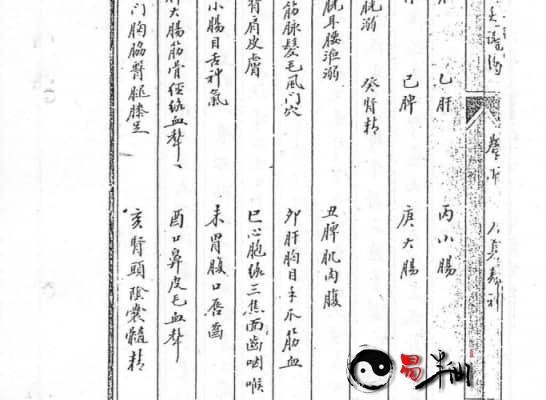 乙肝 丙小腸
己脾 庚大腸
胱溺 癸腎精
胱耳腰泄溺 丑脾肌肉腹
筋脉髮毛風门穴 卯肝胸目手爪筋血
背肩皮膚 巳心胞絡三焦面齒咽喉
小腸目舌神氣 未胃腹口唇齒
大腸筋骨經絡血聲 酉口鼻皮毛血聲
门胸脇臀腿膝足 亥腎頭陰囊髓精
易半仙